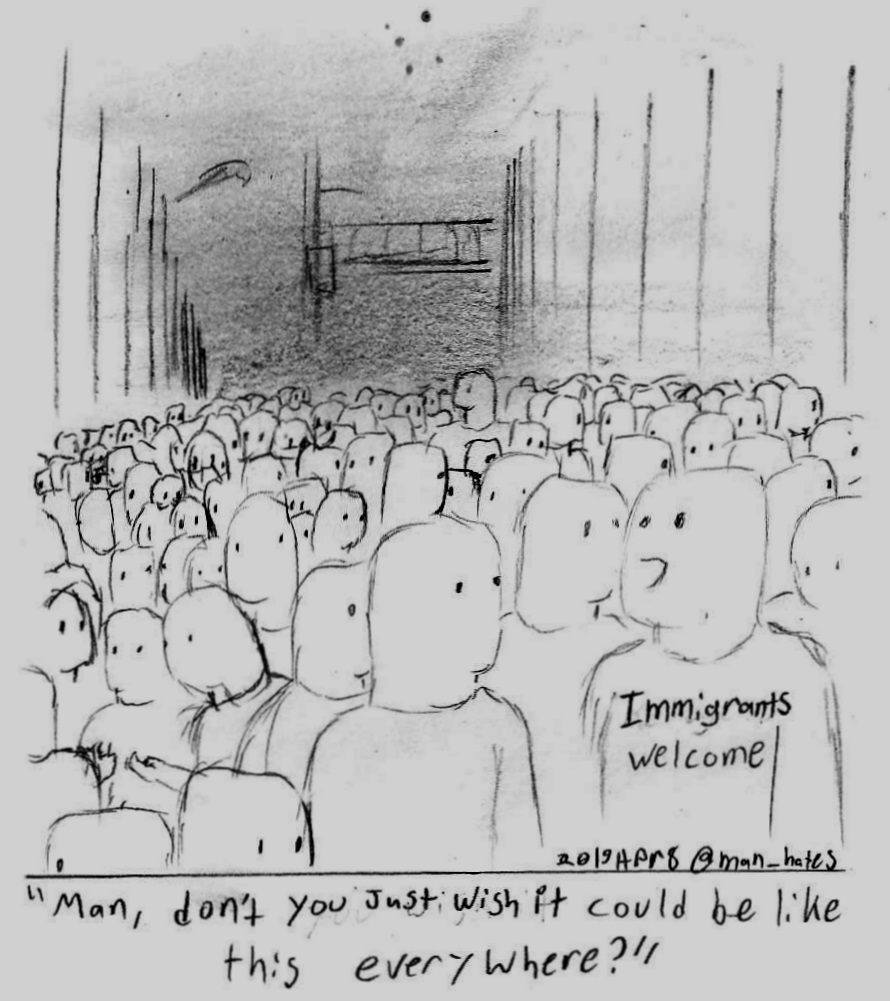 Immigrants
welcome
2019APR8 @man_hates
"Man, don't you just wish it could be like
this everywhere?"